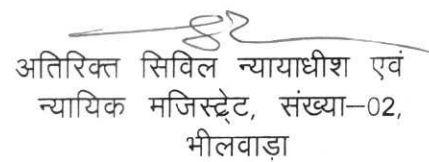 अतिरिक्त सिविल न्यायाधीश एवं
न्यायिक मजिस्ट्रेट, संख्या–02,
भीलवाड़ा